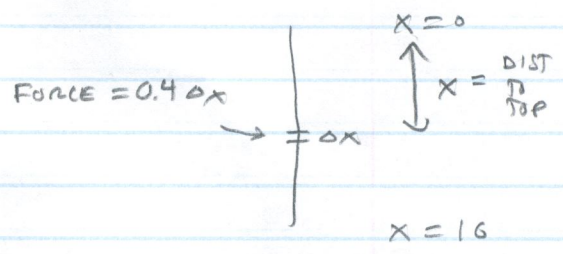 X = 0
FORCE = 0.4 Δx
X = DIST
TO
TOP
Δx
X = 16